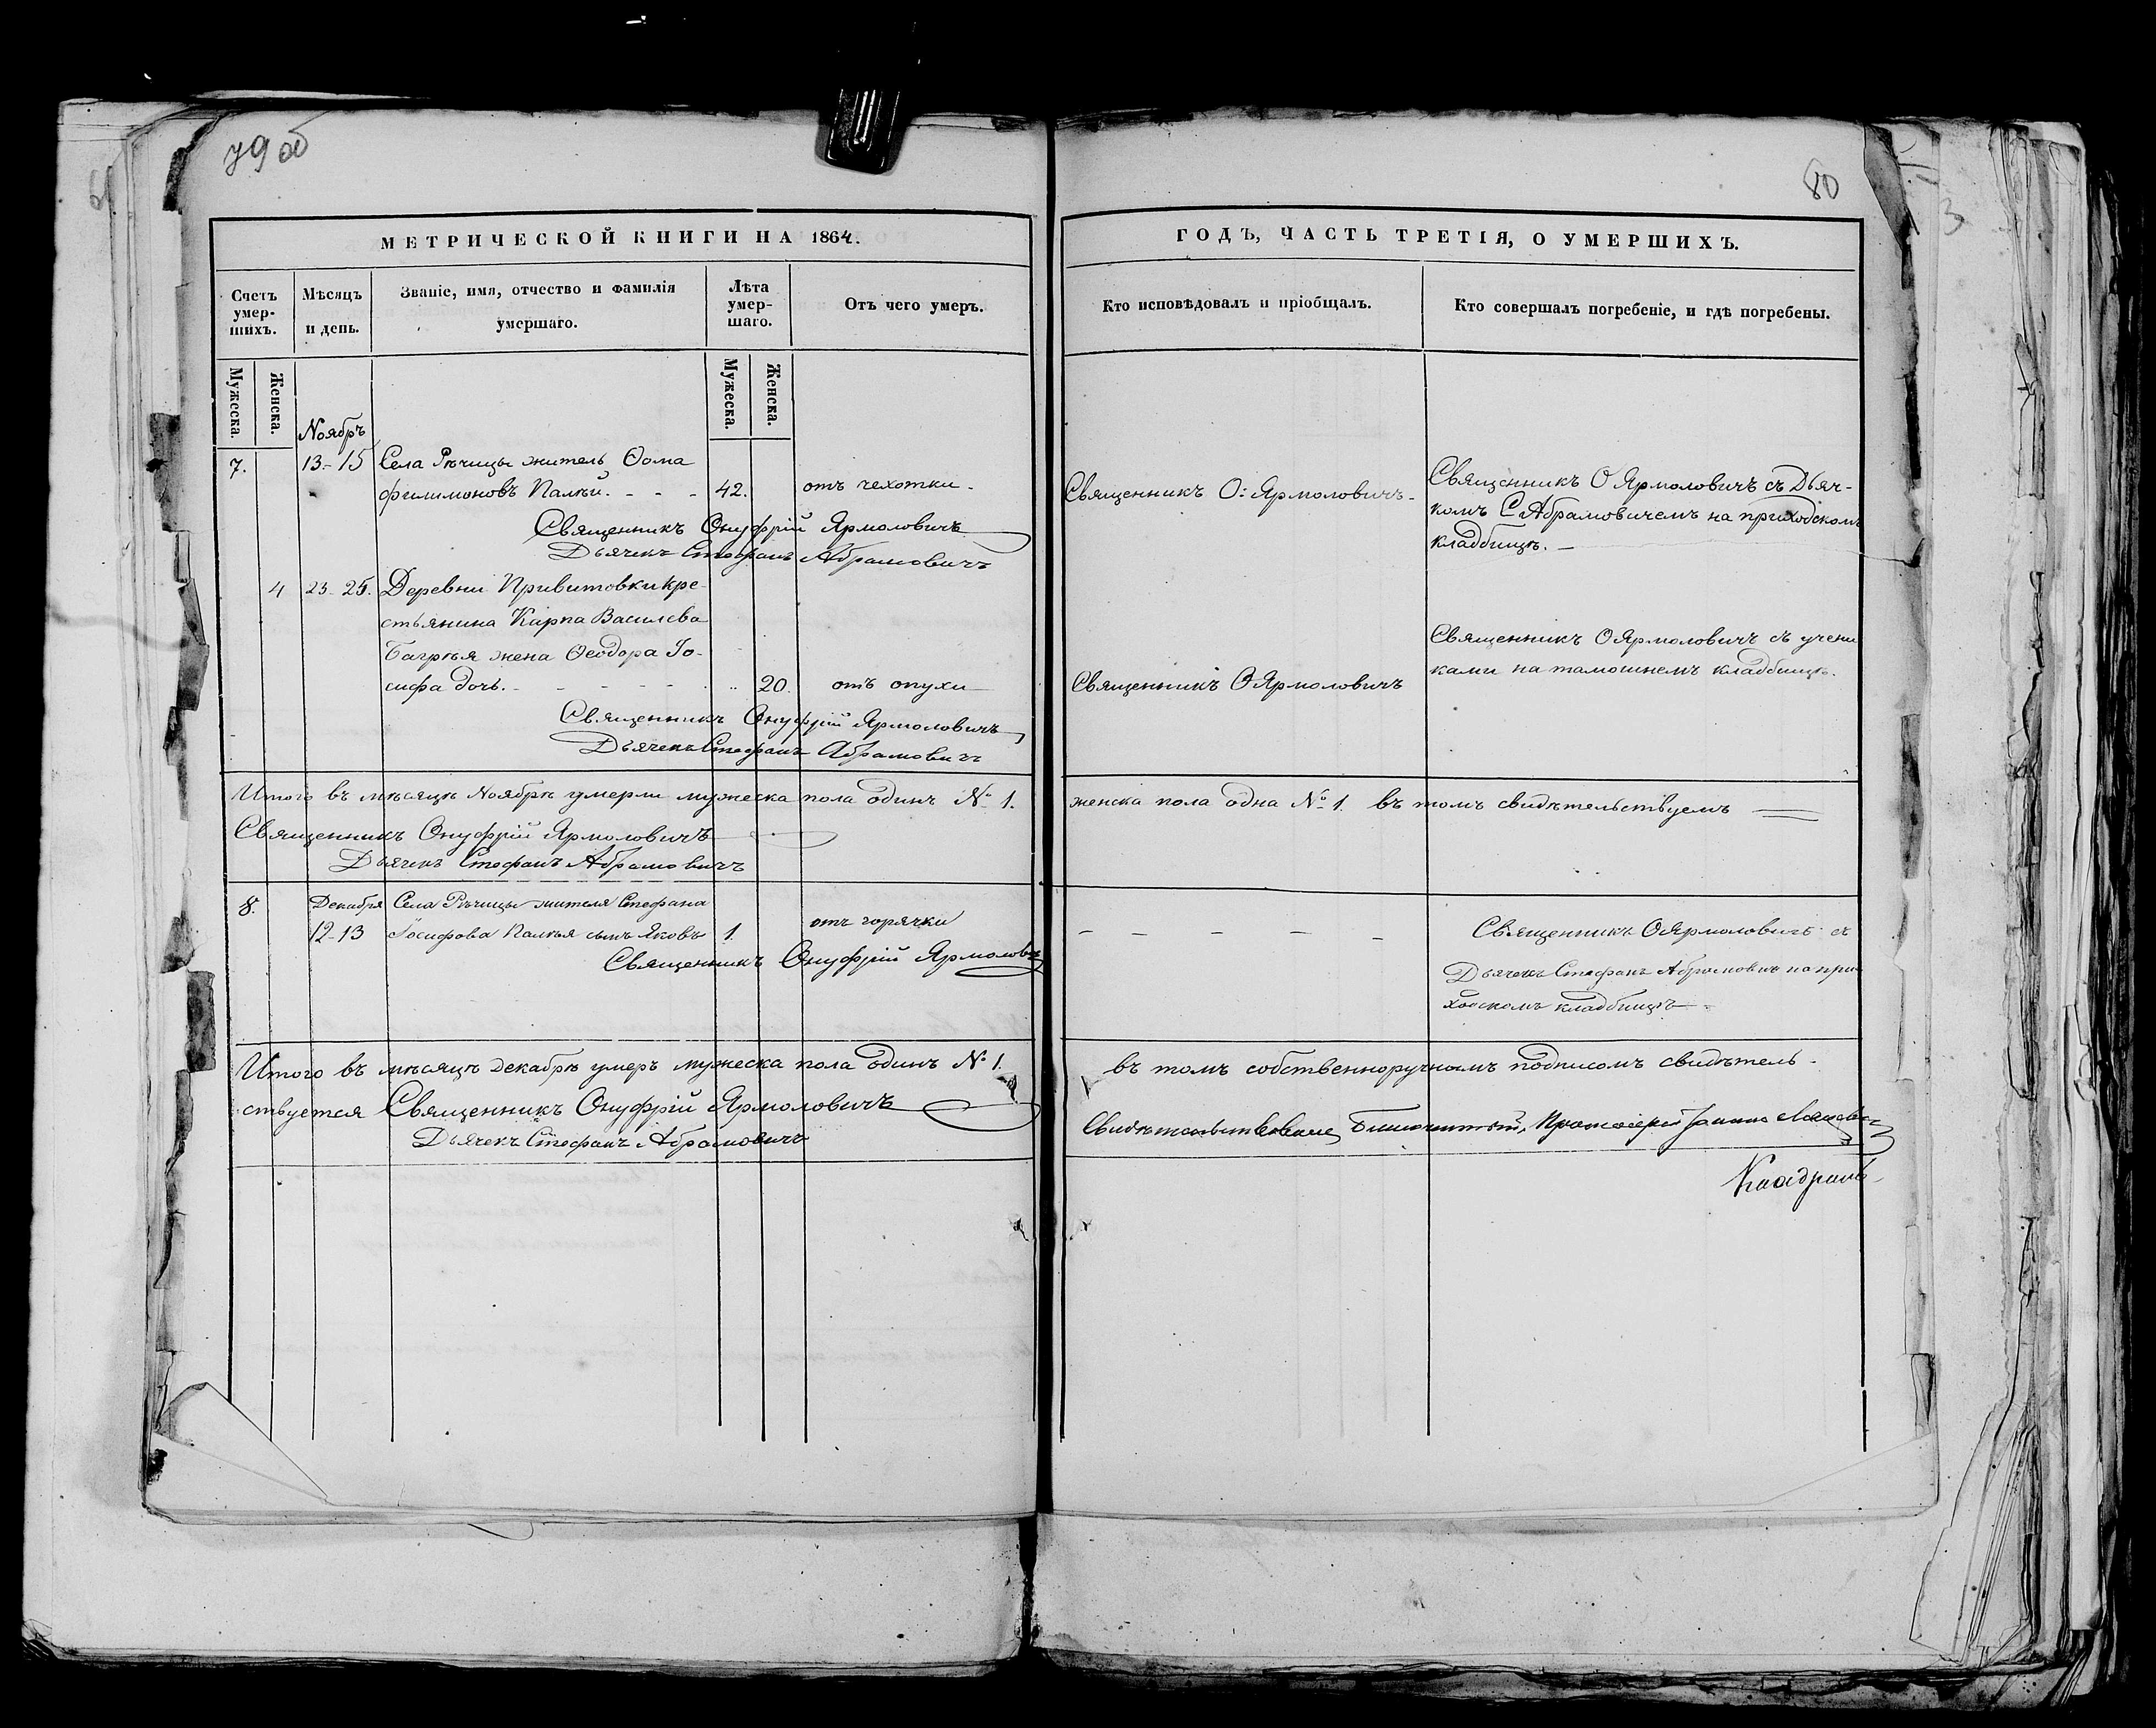 79 об
80
МЕТРИЧЕСКОЙ КНИГИ НА 1864.
ГОДЪ, ЧАСТЬ ТРЕТІЯ, О УМЕРШИХЪ.
Счетъ умер-шихъ.
Мѣсяцъ и день.
Званіе, имя, отчество и фамилія умершаго.
Лѣта умер-шаго.
Отъ чего умеръ.
Кто исповѣдовалъ и пріобщалъ.
Кто совершалъ погребеніе, и гдѣ погребены.
Мужеска.
Женска.
Мужеска.
Женска.
Ноябрь
7. 13-15 Села Рѣчицы житель Ѳома
Филимоновъ Палѣй. - - - 42. отъ чехотки -
Священникъ О: Ярмоловичъ -
Священникъ О Ярмоловичъ съ Дьяч-
комъ С Абрамовичемъ на приходскомъ
кладбищѣ. -
Священникъ Онуфрій Ярмоловичъ
Дьячекъ Стефанъ Абрамовичъ
4 23-25. Деревни Привитовки кре-
стьянина Карпа Василева
Багрѣя жена Ѳеодора Іо-
сифа дочь. - - - - - 20. отъ опухи
Священникъ О Ярмоловичъ
Священникъ О Ярмоловичъ съ учени
ками на тамошнемъ кладбищѣ.
Священникъ Онуфрій Ярмоловичъ
Дьячекъ Стефанъ Абрамовичъ
Итого въ мѣсяцѣ Ноябрѣ умерли мужеска пола одинъ № 1. женска пола одна № 1. въ томъ свидѣтельствуемъ
Священникъ Онуфрій Ярмоловичъ
Дьячекъ Стефанъ Абрамовичъ
8. Декабря Села Рѣчицы жителя Стефана
12-13 Іосифова Палѣя сынъ Яковъ 1. отъ горячки
- - - - -
Священникъ О Ярмоловичъ съ
Дьячекъ Стефанъ Абрамовичъ на при
ходскомъ кладбищѣ
Священникъ Онуфрій Ярмолович
Итого въ мѣсяцѣ декабрѣ умеръ мужеска пола одинъ № 1. въ томъ собственноручнымъ подписомъ свидѣтель-
ствуется Священникъ Онуфрій Ярмоловичъ
Дьячекъ Стефанъ Абрамовичъ
Благочинный, Протоіерей